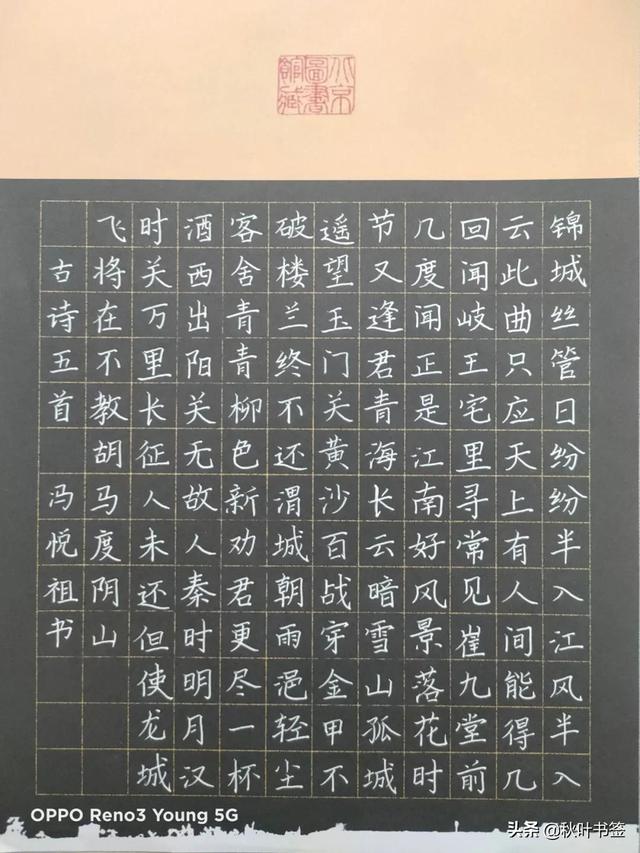 北京
圖書
館藏
锦城丝管日纷纷半入江风半入
云此曲只应天上有人间能得几
回闻岐王宅里寻常见崔九堂前
几度闻正是江南好风景落花时
节又逢君青海长云暗雪山孤城
遥望玉门关黄沙百战穿金甲不
破楼兰终不还渭城朝雨浥轻尘
客舍青青柳色新劝君更尽一杯
酒西出阳关无故人秦时明月汉
时关万里长征人未还但使龙城
飞将在不教胡马度阴山
古诗五首 冯悦祖书
OPPO Reno3 Young 5G
头条 @秋叶书签